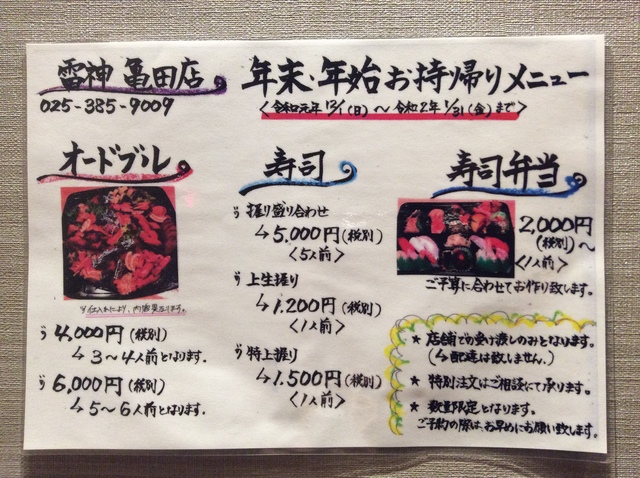 雷神 亀田店
025-385-9009
年末・年始お持帰りメニュー
<令和元年12/1(日)〜令和2年1/31(金)まで>
オードブル
※仕入れにより、内容異なります。
4,000円(税別)
↳3〜4人前となります。
6,000円(税別)
↳5〜6人前となります。
寿司
握り盛り合わせ
↳5,000円(税別)
<5人前>
上生握り
↳1,200円(税別)
<1人前>
特上握り
↳1,500円(税別)
<1人前>
寿司弁当
2,000円
(税別)〜
<1人前>
ご予算に合わせてお作り致します。
★店舗での受け渡しのみとなります。
(↳配達は致しません.)
★特別注文はご相談にて承ります。
★数量限定となります。
ご予約の際は、お早めにお願い致します。